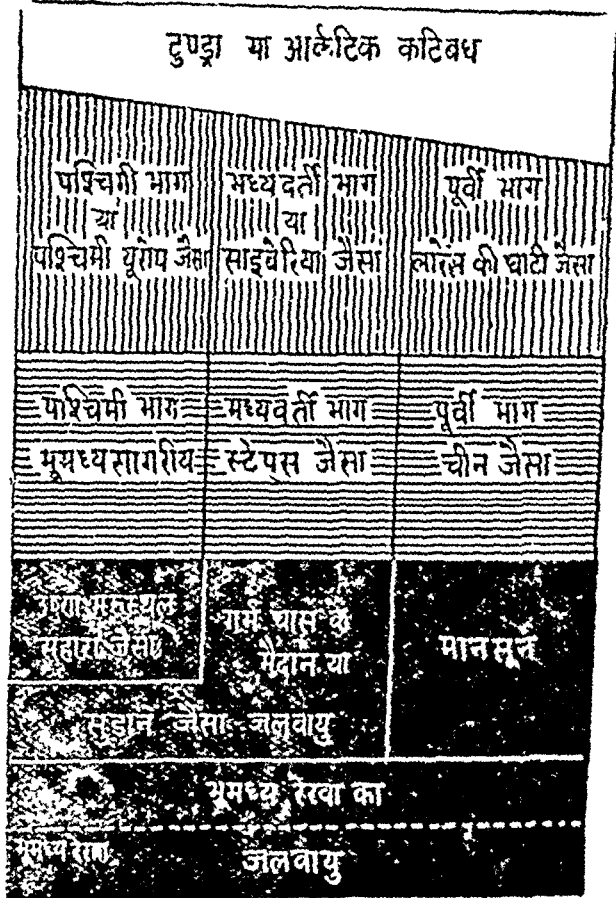 टुण्ड्रा या आर्कटिक कटिबध
पश्चिमी भाग
या
पश्चिमी यूरोप जैसा
मध्यवर्ती भाग
या
साइबेरिया जैसा
पूर्वी भाग
लारेंस की घाटी जैसा
पश्चिमी भाग
भूमध्यसागरीय
मध्यवर्ती भाग
स्टेप्स जैसा
पूर्वी भाग
चीन जैसा
मरुस्थल
सहारा जैसा
गर्म घास के
मैदान या
सूडान जैसा जलवायु
मानसून
भूमध्य रेखा का
भूमध्य रेखा
जलवायु